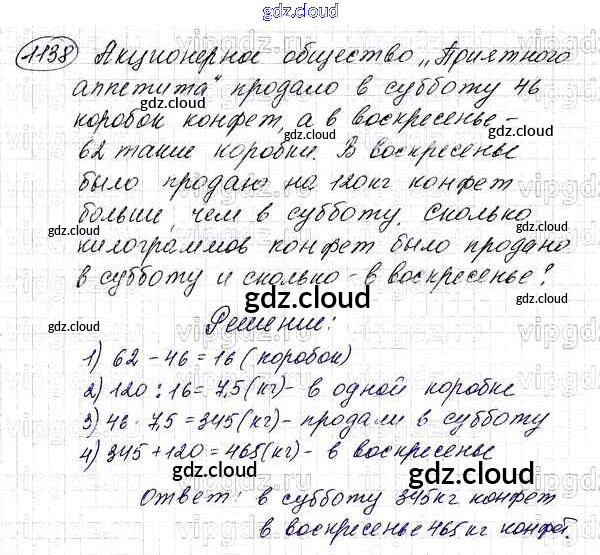 gdz.cloud
1138 Акционерное общество „Приятного
аппетита“ продало в субботу 46
коробок конфет, а в воскресенье –
62 такие коробки. В воскресенье
было продано на 120 кг конфет
больше, чем в субботу. Сколько
килограммов конфет было продано
в субботу и сколько – в воскресенье?
gdz.cloud
Решение:
1) 62 – 46 = 16 (коробок)
2) 120 : 16 = 7,5 (кг) – в одной коробке
3) 46 · 7,5 = 345 (кг) – продали в субботу
4) 345 + 120 = 465 (кг) – в воскресенье
Ответ: в субботу 345 кг конфет
в воскресенье 465 кг конфет.
gdz.cloud